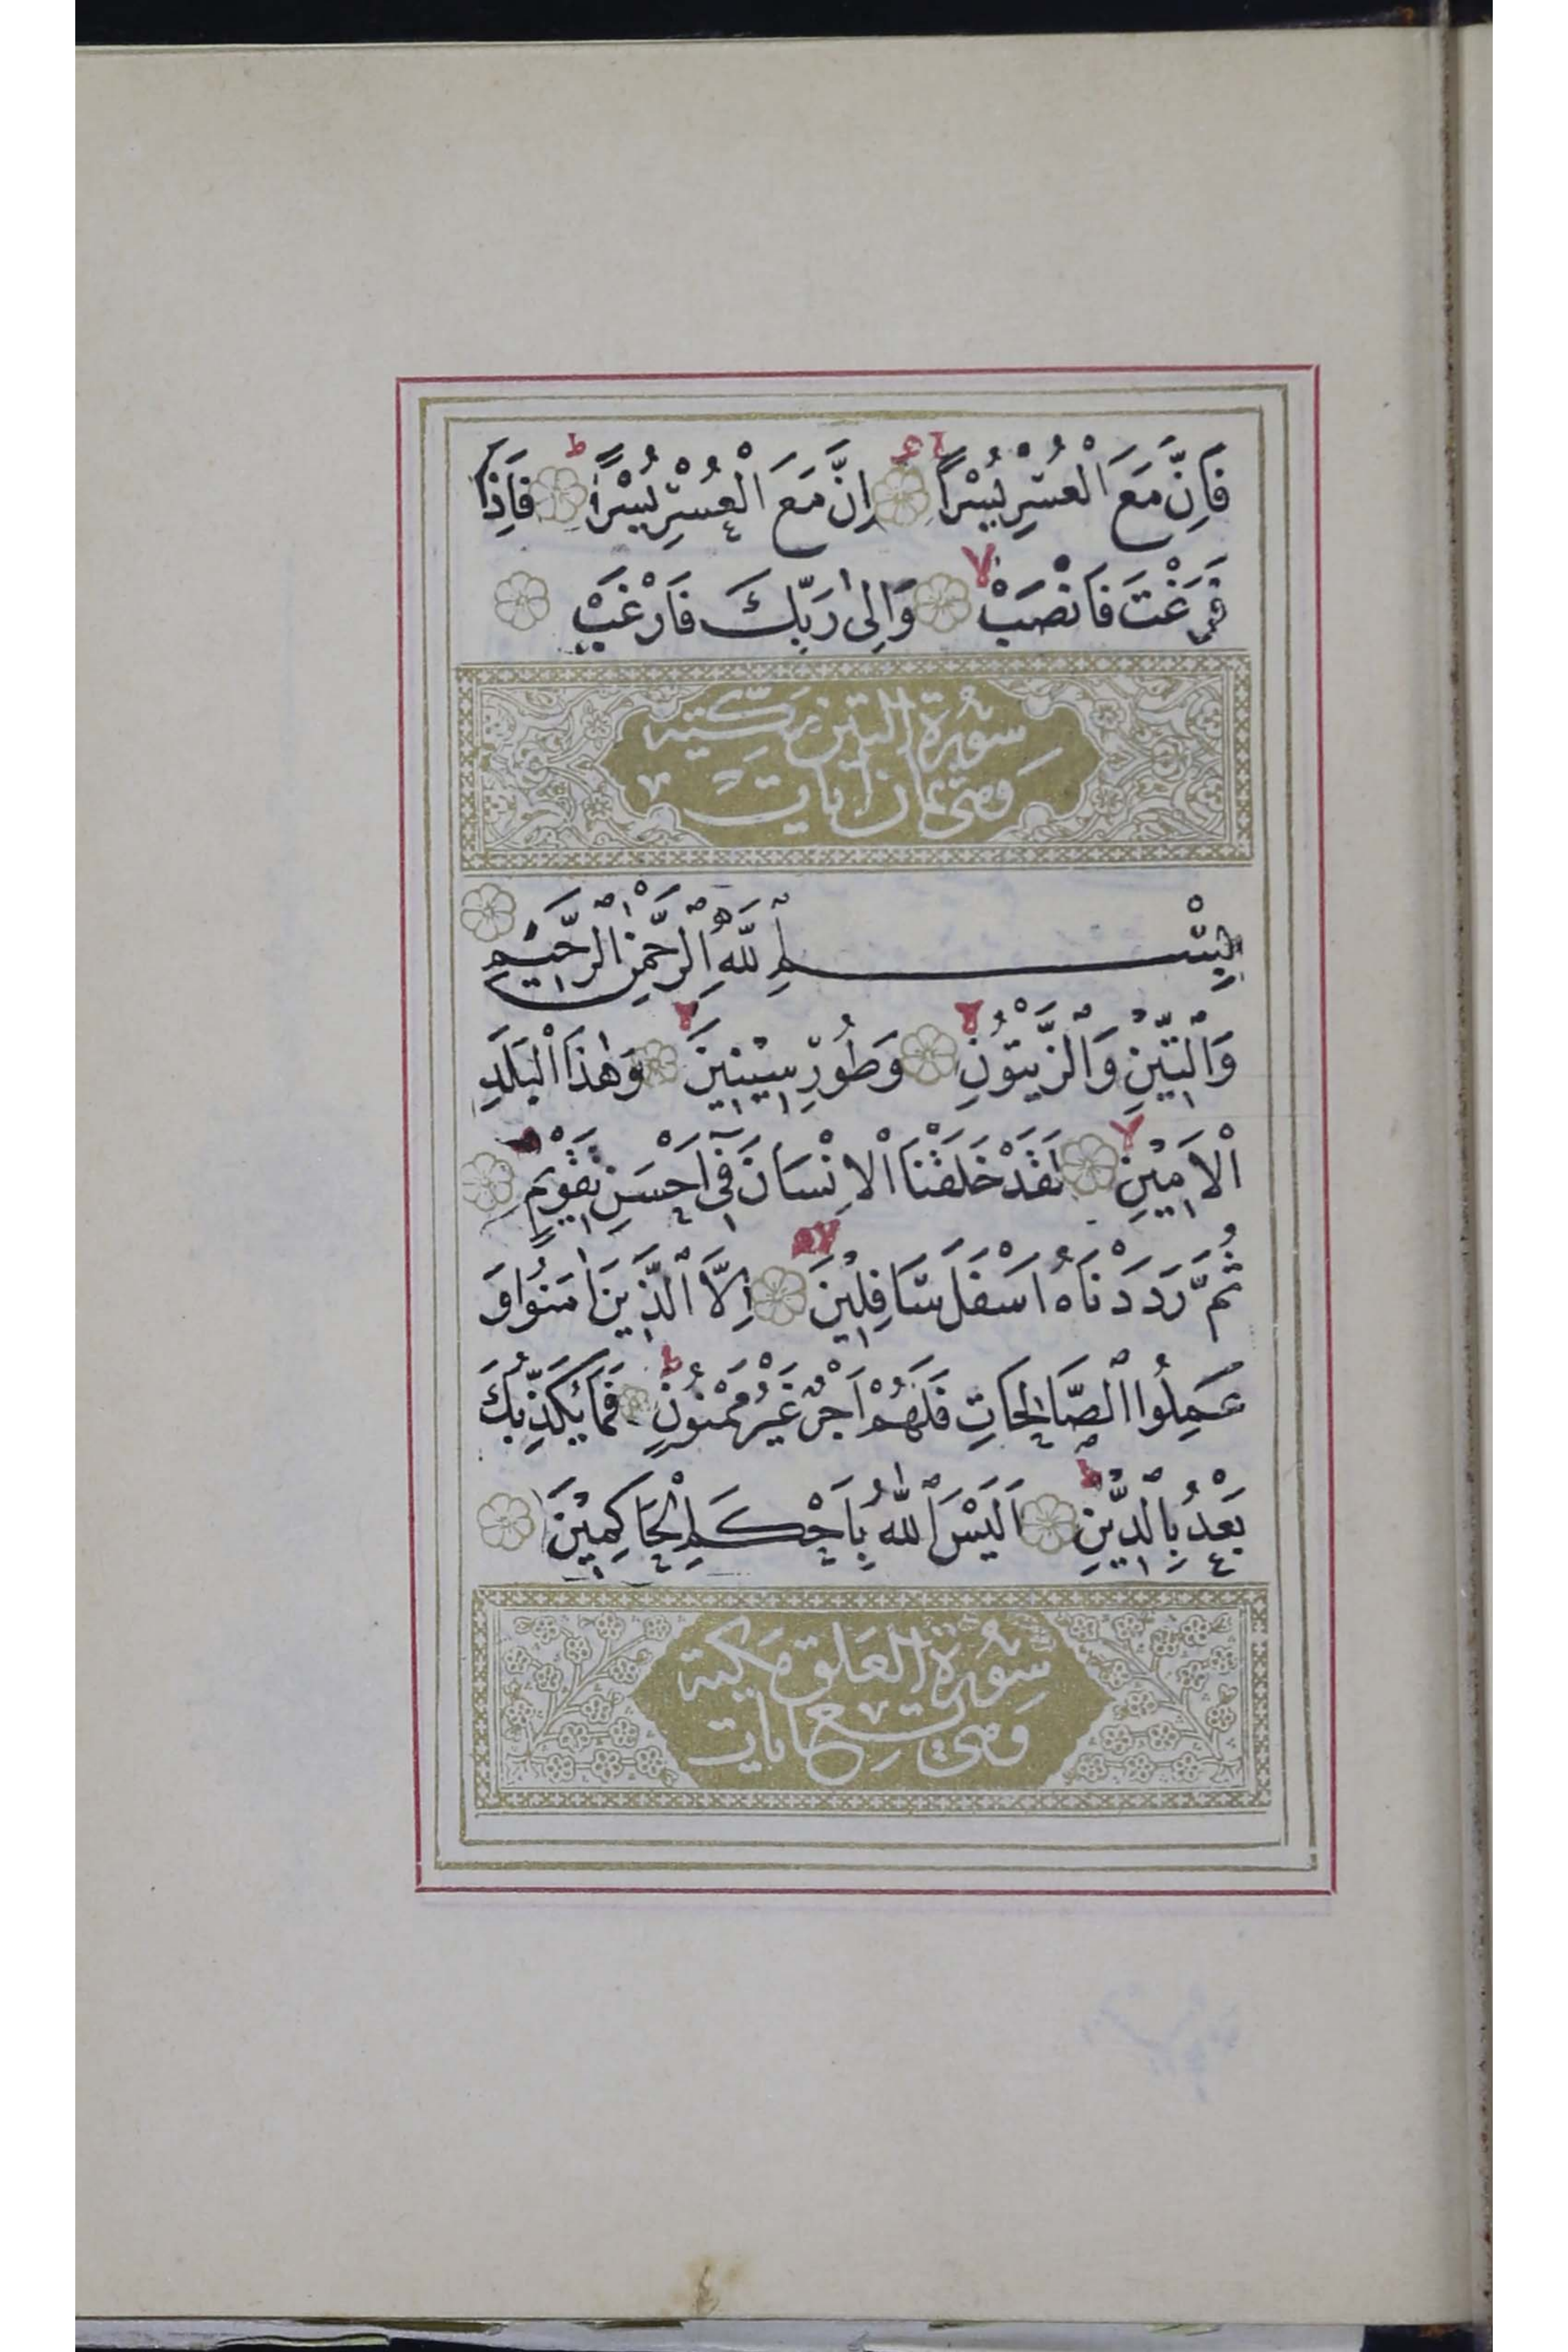 فَاِنَّ مَعَ الْعُسْرِ يُسْرًا اِنَّ مَعَ الْعُسْرِ يُسْرًا فَاِذَا
فَرَغْتَ فَانْصَبْ وَاِلٰى رَبِّكَ فَارْغَبْ
سُورَةُ التين مَكّيّه
وَهى ثمان اٰيات
بِسْمِ ٱللَّهِ ٱلرَّحْمٰنِ ٱلرَّحِيمِ
وَٱلتِّيْنِ وَٱلزَّيْتُوْنِ وَطُوْرِ سِيْنِيْنَ وَهٰذَا الْبَلَدِ
الْاَمِيْنِ لَقَدْ خَلَقْنَا الْاِنْسَانَ فِيٓ اَحْسَنِ تَقْوِيْمٍ
ثُمَّ رَدَدْنَاهُ اَسْفَلَ سَافِلِيْنَ اِلَّا ٱلَّذِيْنَ اٰمَنُوا وَ
عَمِلُوا ٱلصَّالِحَاتِ فَلَهُمْ اَجْرٌ غَيْرُ مَمْنُوْنٍ فَمَا يُكَذِّبُكَ
بَعْدُ بِٱلدِّيْنِ اَلَيْسَ ٱللّٰهُ بِاَحْكَمِ الْحَاكِمِيْنَ
سُورَةُ العَلق مَكية
وَهى تسع ايات